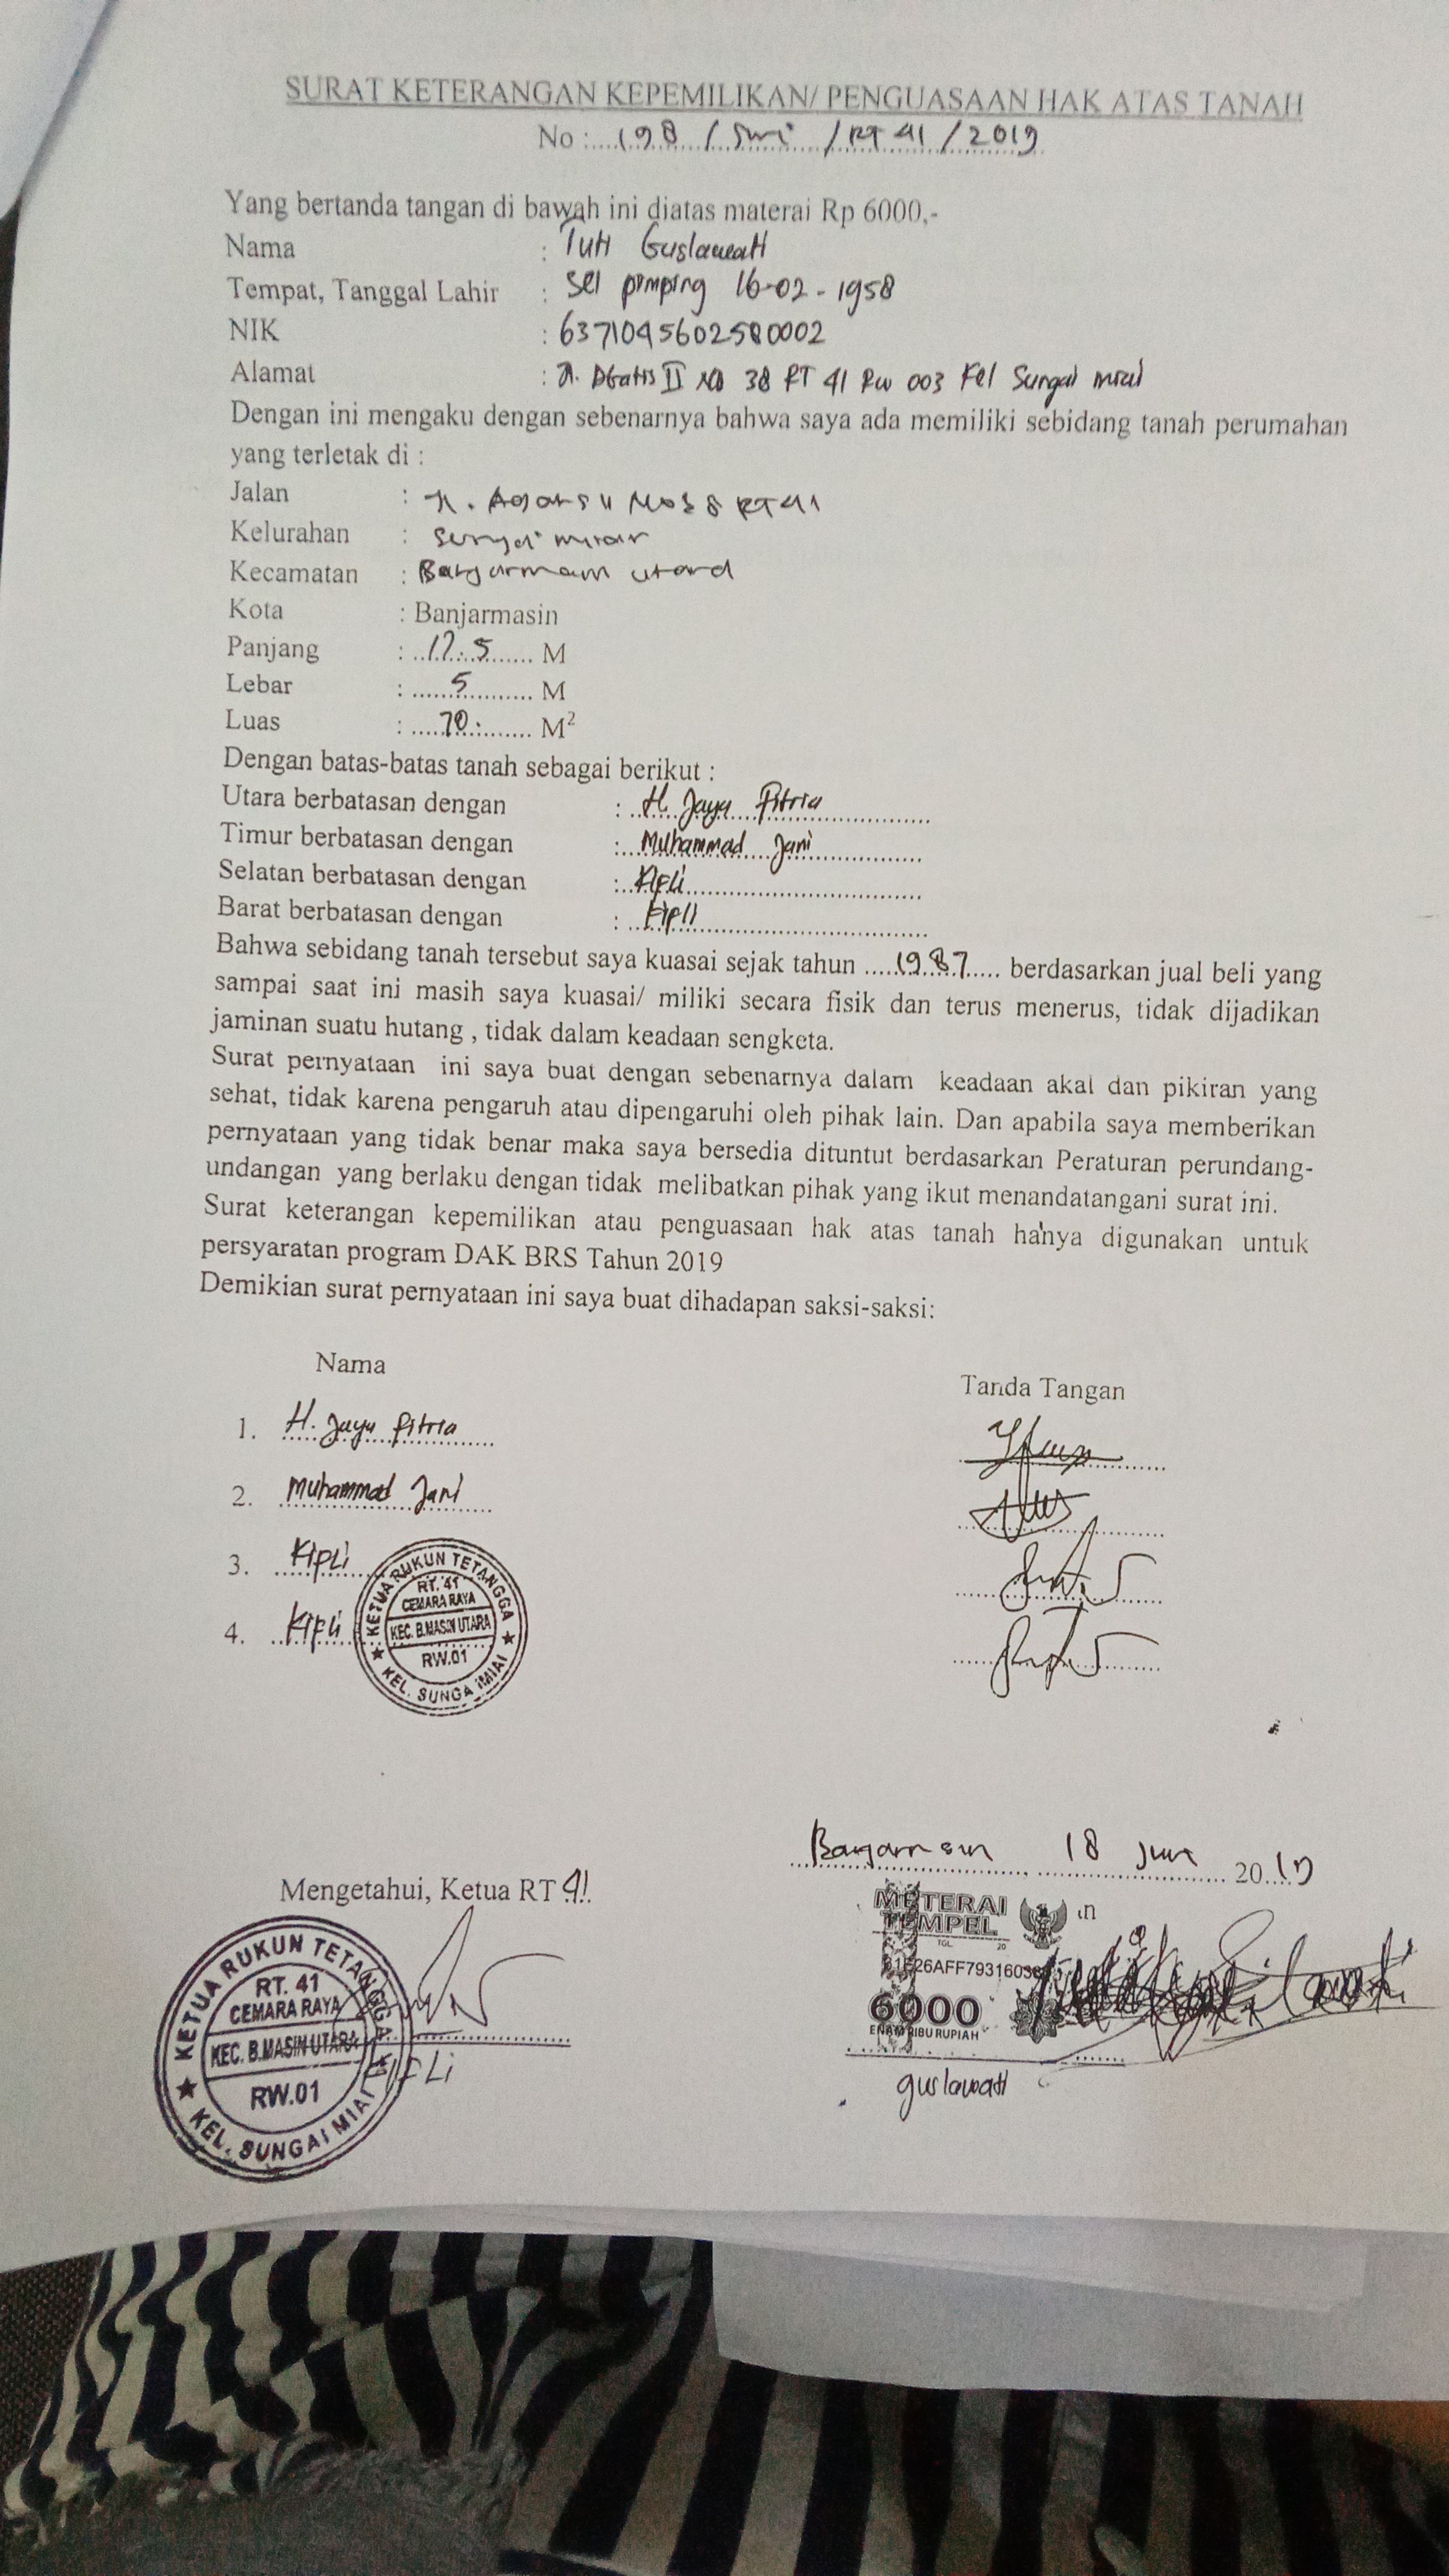 SURAT KETERANGAN KEPEMILIKAN/ PENGUASAAN HAK ATAS TANAH
No : 198 / Smi / RT 41 / 2019
Yang bertanda tangan di bawah ini diatas materai Rp 6000,-
Nama : Tuti Guslawati
Tempat, Tanggal Lahir : Sei pimping 16-02-1958
NIK : 6371045602580002
Alamat : Jl. AGatis II No 38 RT 41 Rw 003 Kel Sungai miai
Dengan ini mengaku dengan sebenarnya bahwa saya ada memiliki sebidang tanah perumahan
yang terletak di :
Jalan : Jl. Agatis II No 38 RT 41
Kelurahan : Sungai miai
Kecamatan : Banjarmasin utara
Kota : Banjarmasin
Panjang : 17.5 M
Lebar : 5 M
Luas : 70 M²
Dengan batas-batas tanah sebagai berikut :
Utara berbatasan dengan : H. Jaya Fitria
Timur berbatasan dengan : Muhammad Jani
Selatan berbatasan dengan : Kipli
Barat berbatasan dengan : Kipli
Bahwa sebidang tanah tersebut saya kuasai sejak tahun 1987 berdasarkan jual beli yang
sampai saat ini masih saya kuasai/ miliki secara fisik dan terus menerus, tidak dijadikan
jaminan suatu hutang , tidak dalam keadaan sengketa.
Surat pernyataan ini saya buat dengan sebenarnya dalam keadaan akal dan pikiran yang
sehat, tidak karena pengaruh atau dipengaruhi oleh pihak lain. Dan apabila saya memberikan
pernyataan yang tidak benar maka saya bersedia dituntut berdasarkan Peraturan perundang-
undangan yang berlaku dengan tidak melibatkan pihak yang ikut menandatangani surat ini.
Surat keterangan kepemilikan atau penguasaan hak atas tanah hanya digunakan untuk
persyaratan program DAK BRS Tahun 2019
Demikian surat pernyataan ini saya buat dihadapan saksi-saksi:
Nama Tanda Tangan
1. H. Jaya fitria
2. Muhammad Jani
3. Kipli
4. Kipli
KETUA RUKUN TETANGGA
RT. 41
CEMARA RAYA
KEC. B.MASIN UTARA
RW.01
KEL. SUNGAI MIAI
Banjarmasin 18 Juni 2019
Mengetahui, Ketua RT 41
METERAI
TEMPEL
TGL. 20
6000
ENAM RIBU RUPIAH
KETUA RUKUN TETANGGA
RT. 41
CEMARA RAYA
KEC. B.MASIN UTARA
RW.01
KEL. SUNGAI MIAI
KIPLi
guslawati